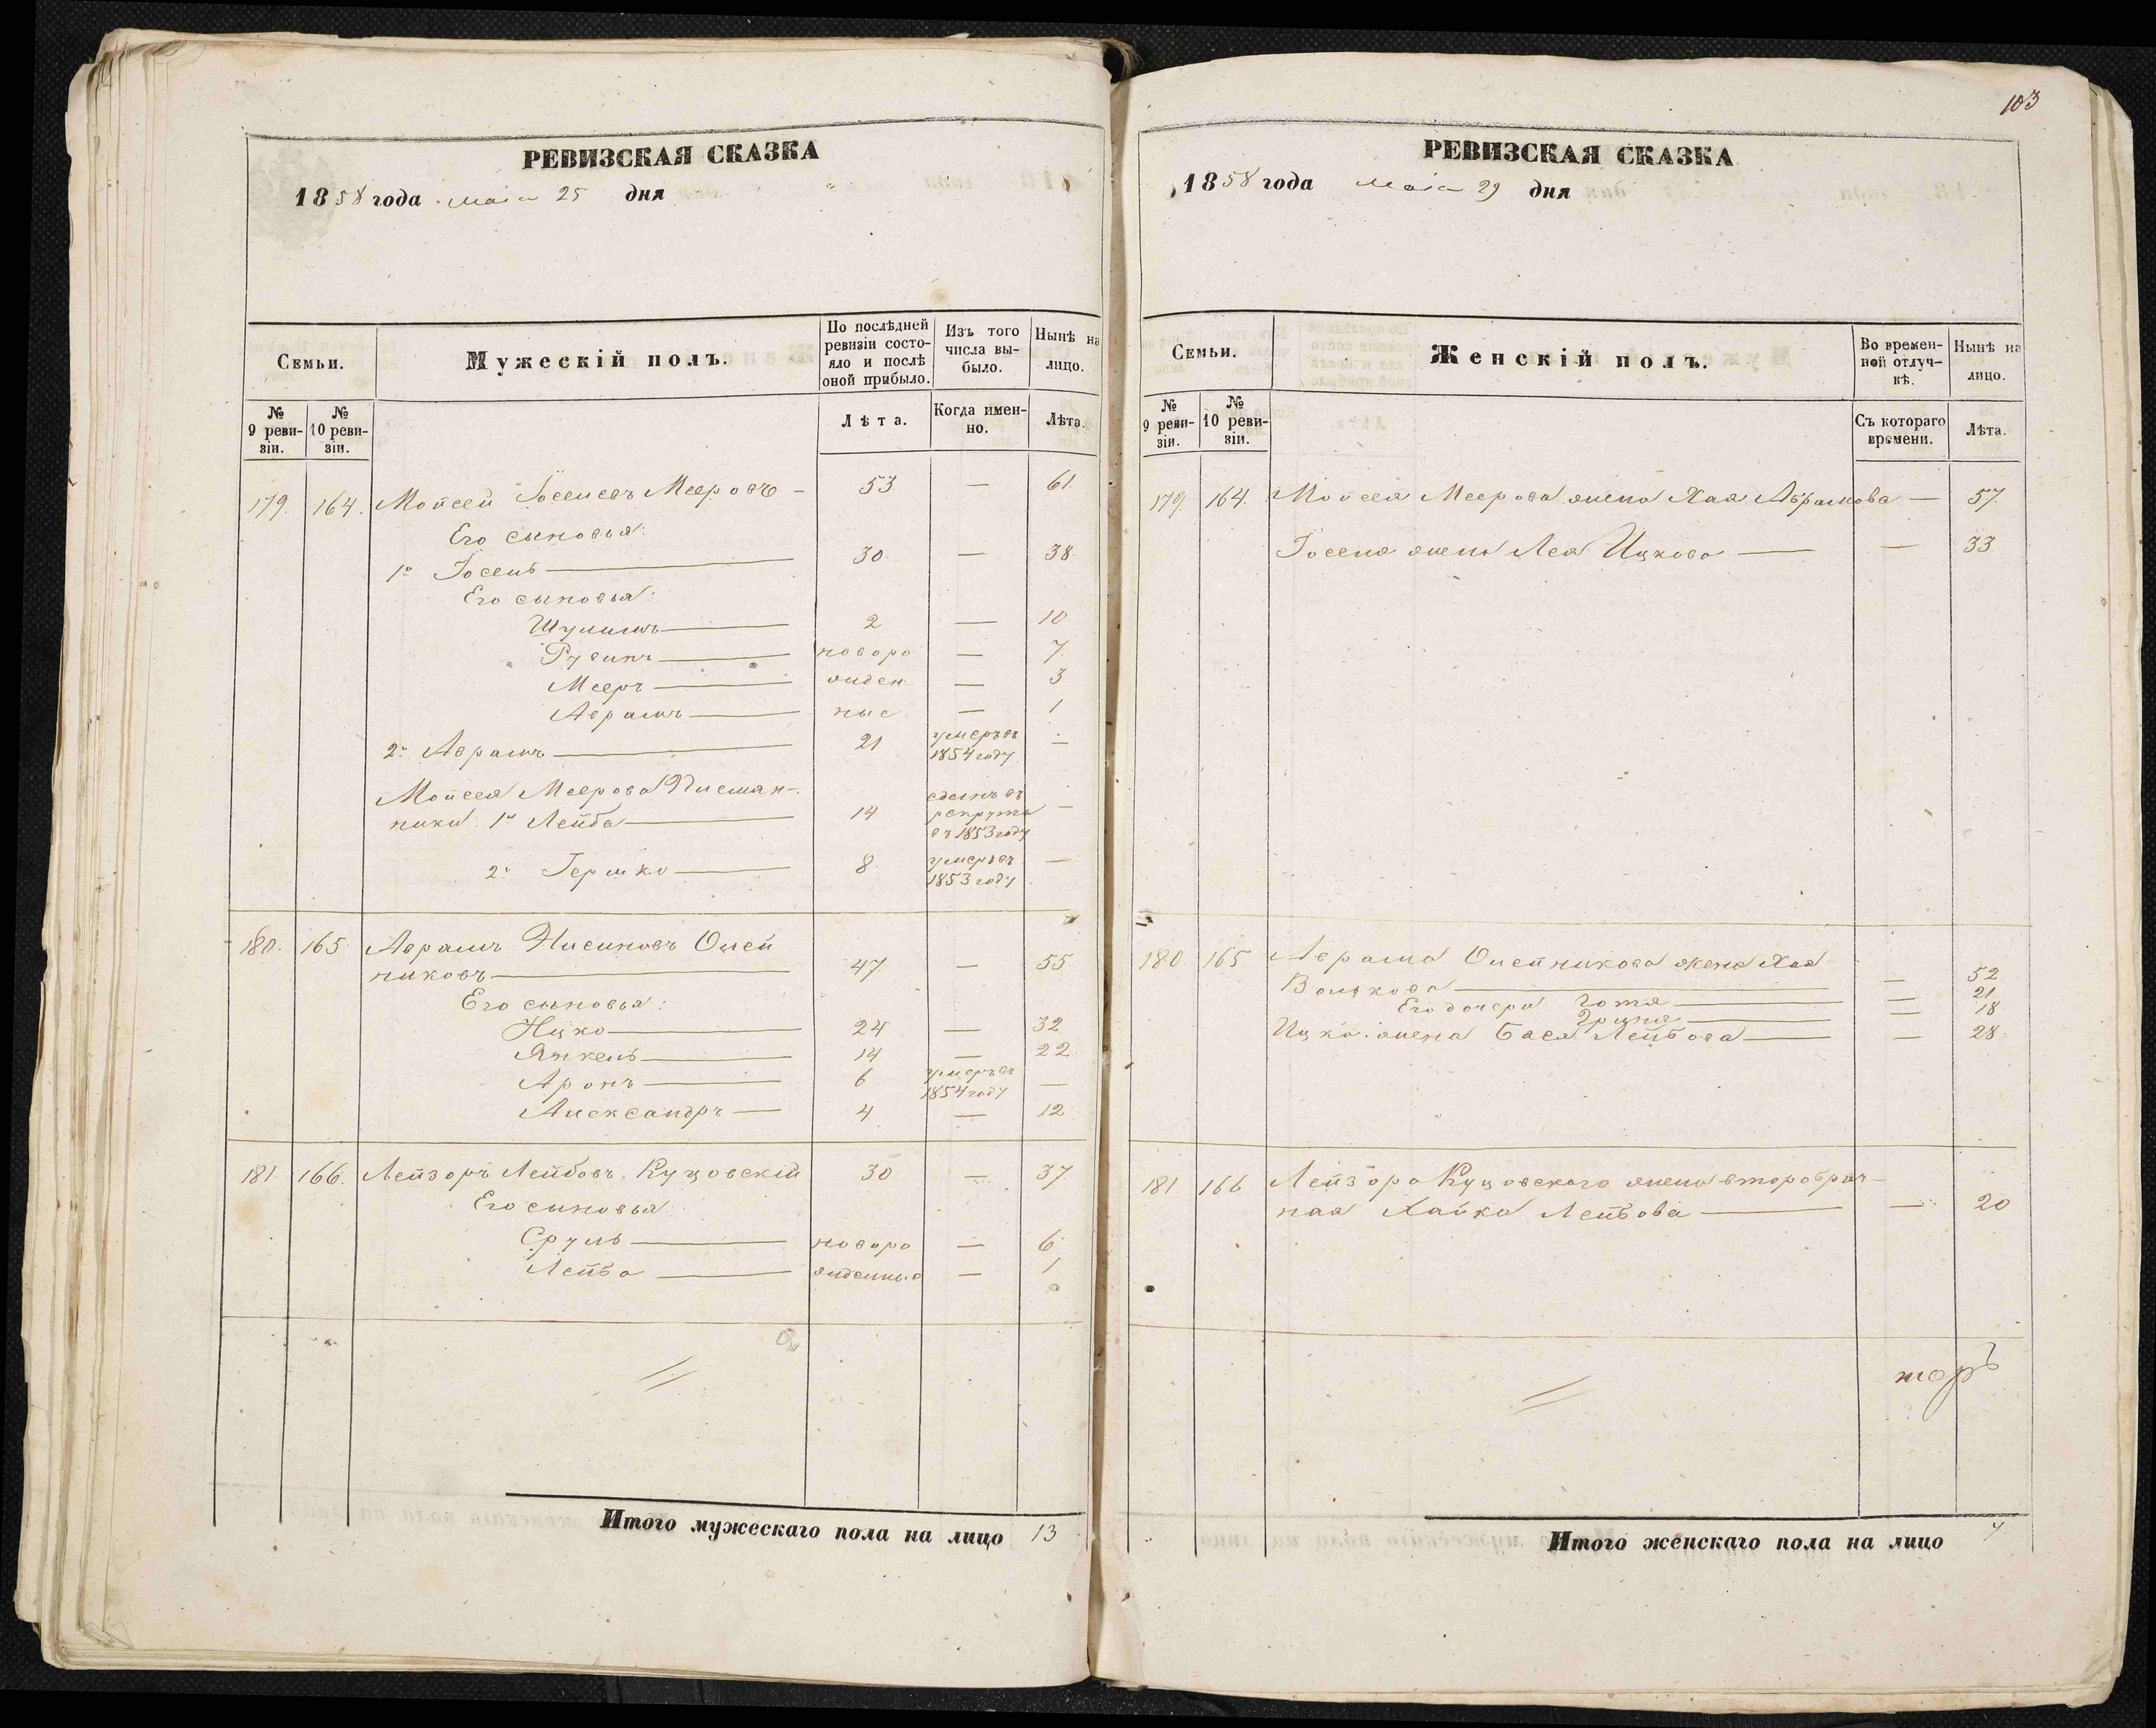 103
РЕВИЗСКАЯ СКАЗКА
1858 года маія 25 дня
Семьи.
Мужескій полъ.
По послѣдней ревизіи состояло и послѣ оной прибыло.
Изъ того числа выбыло.
Нынѣ на лицо.
№ 9 ревизіи.
№ 10 ревизіи.
Лѣта.
Когда именно.
Лѣта.
179. 164. Мойсей Іоселевъ Мееровъ — 53. — 61
Его сыновья:
1й Іосель — 30 — 38.
Его сыновья:
Шулимъ — 2 — 10
Рувинъ — новоро — 7.
Мееръ — жден — 3
Аврамъ — ные — 1
2й Аврамъ — 21 умеръ въ 1854 году —
Мойсея Меерова Племян-
ники 1й Лейба — 14 сданъ въ рекруты въ 1853 году —
2й Гершко — 8 умеръ въ 1853 году —
180. 165. Аврамъ Нисиновъ Олей
никовъ — 47 — 55
Его сыновья:
Ицко — 24 — 32
Янкель — 14 — 22
Аронъ — 6 умеръ въ 1854 году —
Александръ — 4 — 12
181 166. Лейзоръ Лейбовъ Куцовскій 30 — 37.
Его сыновья
Сруль — новоро — 6
Лейба — жденные — 1
Итого мужескаго пола на лицо 13
РЕВИЗСКАЯ СКАЗКА
1858 года маія 29 дня
Семьи.
Женскій полъ.
Во временной отлучкѣ.
Нынѣ на лицо.
№ 9 ревизіи.
№ 10 ревизіи.
Съ котораго времени.
Лѣта.
179. 164. Мойсея Меерова жена Хая Абрамова — 57.
Іоселя жена Лея Ицкова — — 33
180. 165 Аврама Олейникова жена Хая
Волькова — — 52
Его дочери Готя — — 21
— — 18
Ицка жена Бася Лейбова — — 28
181 166 Лейзора Куцовскаго жена второбрач-
ная Хайка Лейбова — — 20
торъ
Итого женскаго пола на лицо 7